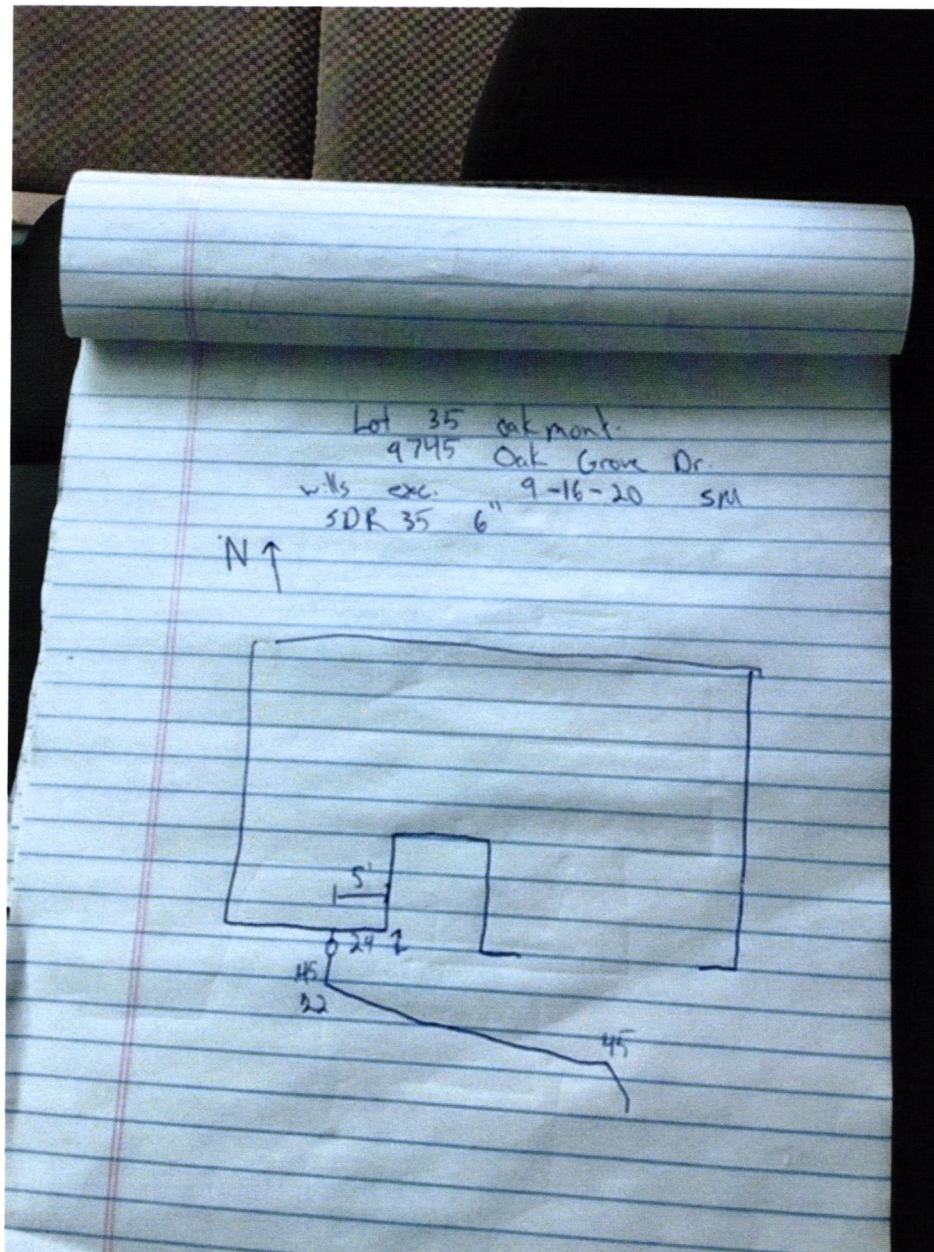 Lot 35 oakmont.
9745 Oak Grove Dr.
wills exc. 9-16-20 SM
SDR 35 6"
N
5'
24
45
22
45